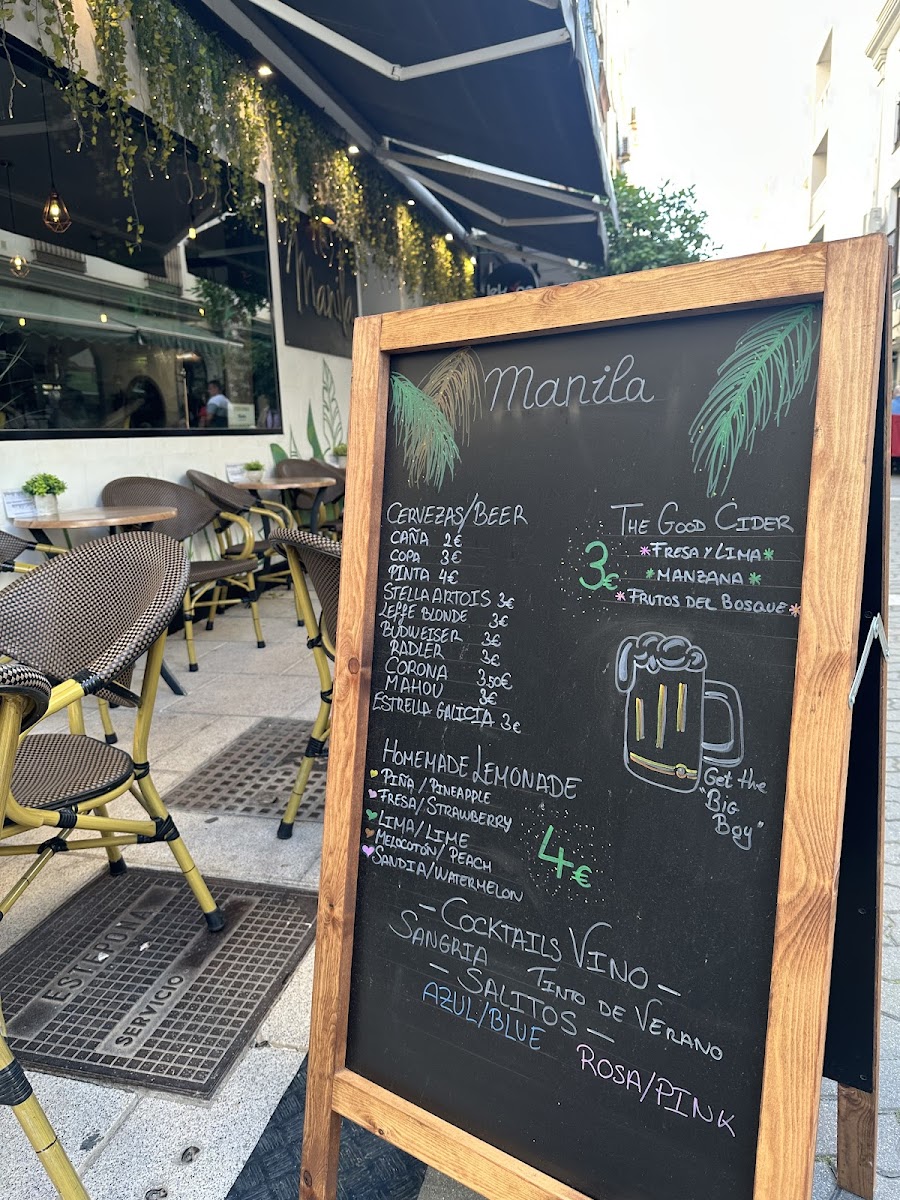 Manila
Manila
CERVEZAS/BEER
CAÑA 2€
COPA 3€
PINTA 4€
STELLA ARTOIS 3€
LEFFE BLONDE 3€
BUDWEISER 3€
RADLER 3€
CORONA 3,50€
MAHOU 3€
ESTRELLA GALICIA 3€
THE GOOD CIDER
3€
*FRESA Y LIMA*
*MANZANA*
*FRUTOS DEL BOSQUE*
Get the
"Big
Boy"
HOMEMADE LEMONADE
PIÑA/PINEAPPLE
FRESA/STRAWBERRY
LIMA/LIME
MELOCOTÓN/PEACH
SANDIA/WATERMELON
4€
- COCKTAILS VINO -
SANGRIA TINTO DE VERANO
- SALITOS -
AZUL/BLUE
ROSA/PINK
ESTEPONA
SERVICIO